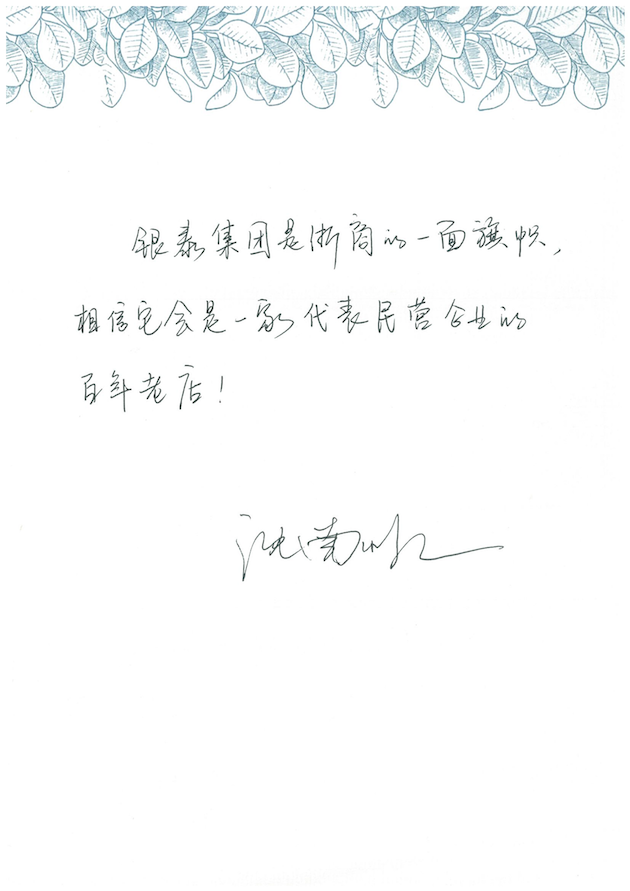 银泰集团是浙商的一面旗帜，
相信它会是一家代表民营企业的
百年老店！